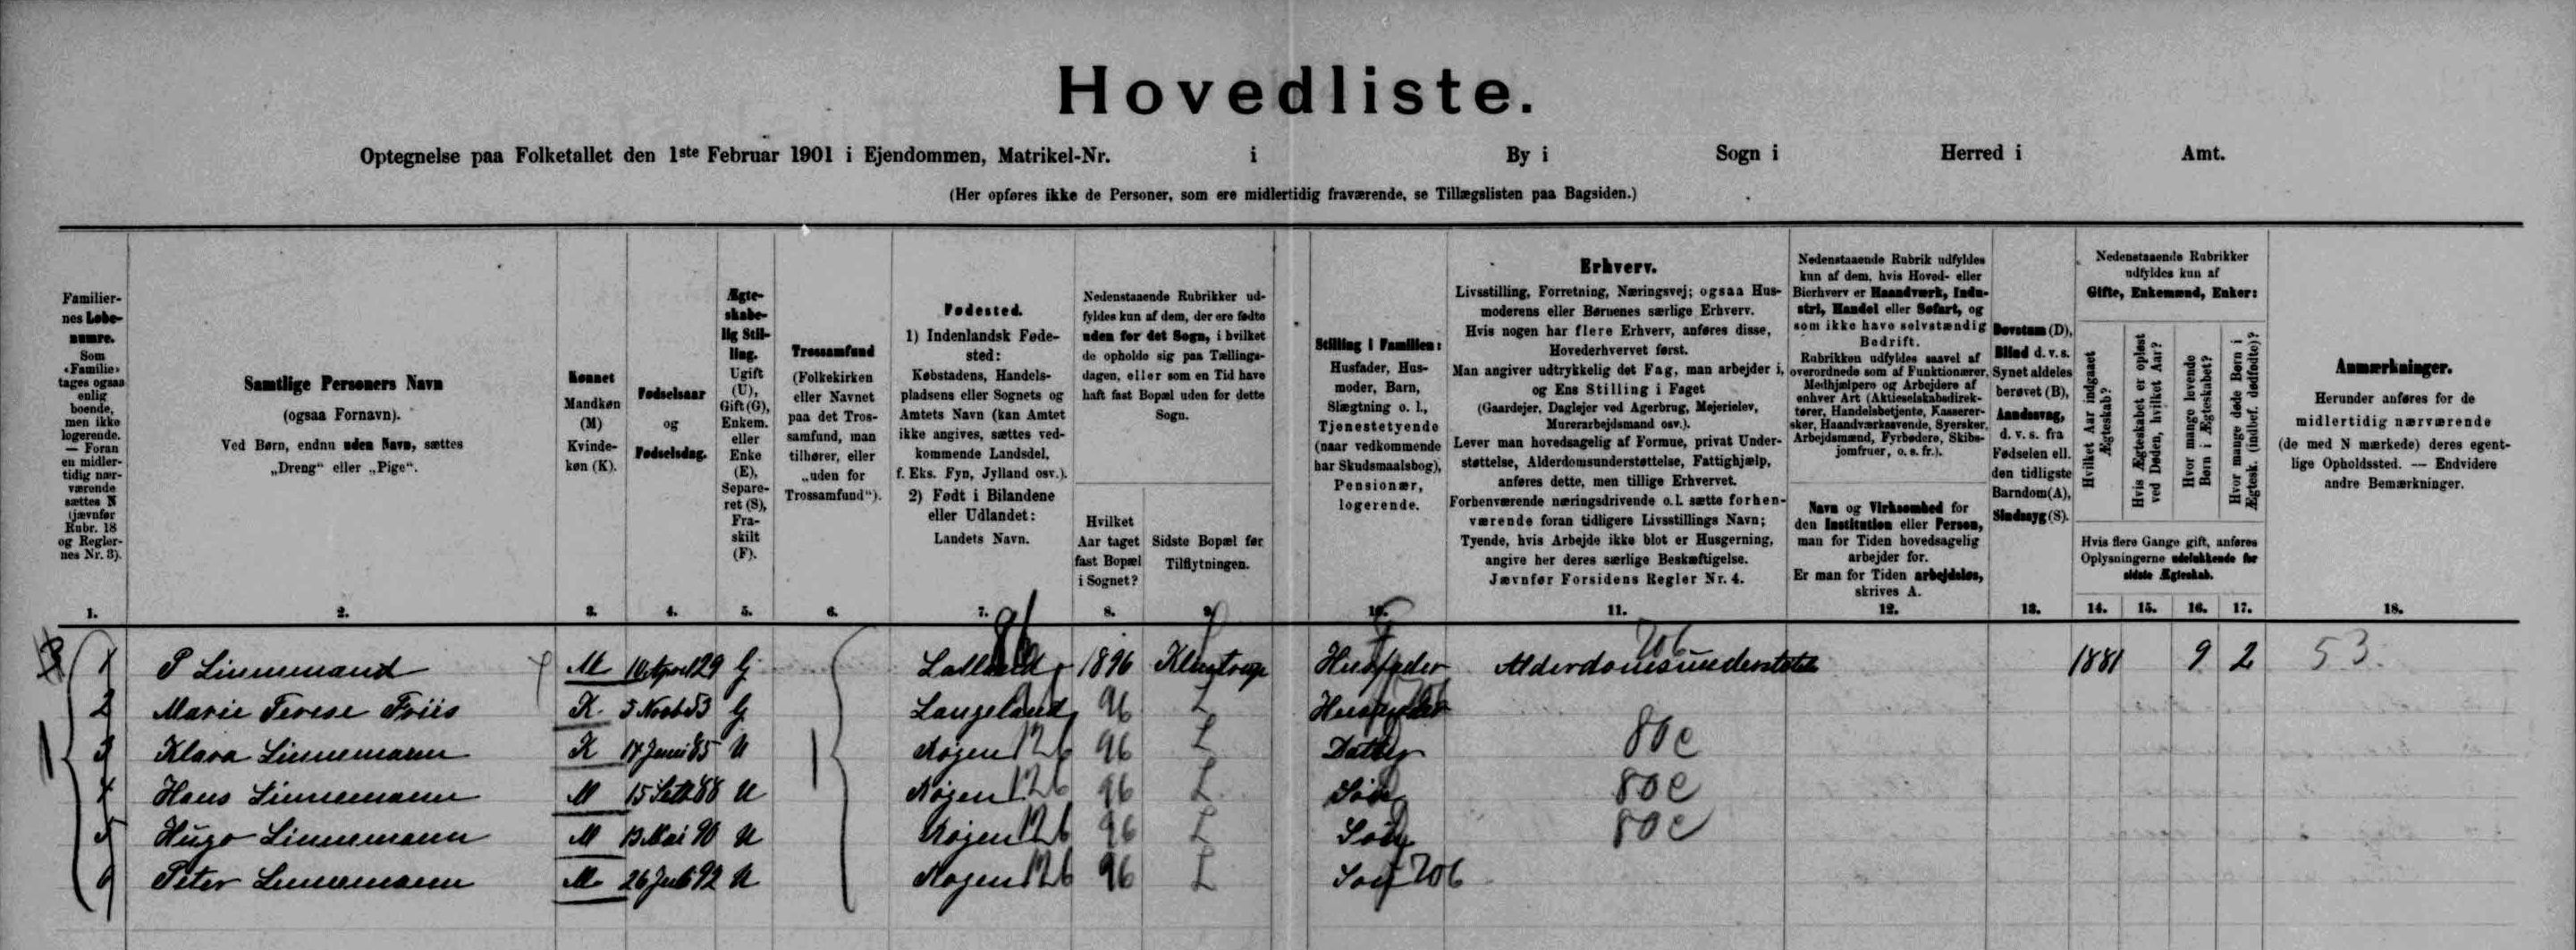 Hovedliste.
Optegnelse paa Folketallet den 1ste Februar 1901 i Ejendommen, Matrikel-Nr. i By i Sogn i Herred i Amt.
(Her opføres ikke de Personer, som ere midlertidig fraværende, se Tillægslisten paa Bagsiden.)
Familier-
nes Løbe-
numre.
Som
«Familie»
tages ogsaa
enlig
boende,
men ikke
logerende.
— Foran
en midler-
tidig nær-
værende
sættes N
(jævnfør
Rubr. 18
og Regler-
nes Nr. 3).
1.
Samtlige Personers Navn
(ogsaa Fornavn).
Ved Børn, endnu uden Navn, sættes
„Dreng“ eller „Pige“.
2.
Kønnet
Mandkøn
(M)
Kvinde-
køn (K).
3.
Fødselsaar
og
Fødselsdag.
4.
Ægte-
skabe-
lig Stil-
ling.
Ugift
(U),
Gift (G),
Enkem.
eller
Enke
(E),
Separe-
ret (S),
Fra-
skilt
(F).
5.
Trossamfund
(Folkekirken
eller Navnet
paa det Tros-
samfund, man
tilhører, eller
„uden for
Trossamfund“).
6.
Fødested.
1) Indenlandsk Føde-
sted:
Købstadens, Handels-
pladsens eller Sognets og
Amtets Navn (kan Amtet
ikke angives, sættes ved-
kommende Landsdel,
f. Eks. Fyn, Jylland osv.).
2) Født i Bilandene
eller Udlandet:
Landets Navn.
7.
Nedenstaaende Rubrikker ud-
fyldes kun af dem, der ere fødte
uden for det Sogn, i hvilket
de opholde sig paa Tællings-
dagen, eller som en Tid have
haft fast Bopæl uden for dette
Sogn.
Hvilket
Aar taget
fast Bopæl
i Sognet?
8.
Sidste Bopæl før
Tilflytningen.
9.
Stilling i Familien:
Husfader, Hus-
moder, Barn,
Slægtning o. l.,
Tjenestetyende
(naar vedkommende
har Skudsmaalsbog),
Pensionær,
logerende.
10.
Erhverv.
Livsstilling, Forretning, Næringsvej; ogsaa Hus-
moderens eller Børnenes særlige Erhverv.
Hvis nogen har flere Erhverv, anføres disse,
Hovederhvervet først.
Man angiver udtrykkelig det Fag, man arbejder i,
og Ens Stilling i Faget
(Gaardejer, Daglejer ved Agerbrug, Mejerielev,
Murerarbejdsmand osv.).
Lever man hovedsagelig af Formue, privat Under-
støttelse, Alderdomsunderstøttelse, Fattighjælp,
anføres dette, men tillige Erhvervet.
Forhenværende næringsdrivende o.l. sætte forhen-
værende foran tidligere Livsstillings Navn;
Tyende, hvis Arbejde ikke blot er Husgerning,
angive her deres særlige Beskæftigelse.
Jævnfør Forsidens Regler Nr. 4.
11.
Nedenstaaende Rubrik udfyldes
kun af dem, hvis Hoved- eller
Bierhverv er Haandværk, Indu-
stri, Handel eller Søfart, og
som ikke have selvstændig
Bedrift.
Rubrikken udfyldes saavel af
overordnede som af Funktionærer,
Medhjælpere og Arbejdere af
enhver Art (Aktieselskabsdirek-
tører, Handelsbetjente, Kasserer-
sker, Haandværkssvende, Syersker,
Arbejdsmænd, Fyrbødere, Skibs-
jomfruer, o. s. fr.).
Navn og Virksomhed for
den Institution eller Person,
man for Tiden hovedsagelig
arbejder for.
Er man for Tiden arbejdsløs,
skrives A.
12.
Døvstum (D),
Blind d. v. s.
Synet aldeles
berøvet (B),
Aandssvag,
d. v. s. fra
Fødselen ell.
den tidligste
Barndom(A),
Sindssyg (S).
13.
Nedenstaaende Rubrikker
udfyldes kun af
Gifte, Enkemænd, Enker:
Hvilket Aar indgaaet
Ægteskab?
Hvis Ægteskabet er opløst
ved Døden, hvilket Aar?
Hvor mange levende
Børn i Ægteskabet?
Hvor mange døde Børn i
Ægtesk. (indbef. dødfødte)?
Hvis flere Gange gift, anføres
Oplysningerne udelukkende for
sidste Ægteskab.
14. 15. 16. 17.
Anmærkninger.
Herunder anføres for de
midlertidig nærværende
(de med N mærkede) deres egent-
lige Opholdssted. — Endvidere
andre Bemærkninger.
18.
1 P Linnemand M 16 April 29 G Lolland 1896 Husfader 706 Alderdomsunderstøttelse 1881 9 2 53.
2 Marie Terese Friis K 3 Novb 53 G Langeland 96 L
3 Klara Linnemann K 14 Juni 85 U Køgen 126 96 L Datter 80e
4 Hans Linnemann M 15 Sett 88 U Køgen 126 96 L Søn 80e
5 Hugo Linnemann M 13 Mai 90 U Køgen 126 96 L Søn 80e
6 Peter Linnemann M 26 Juli 92 U Køgen 126 96 L Søn 706